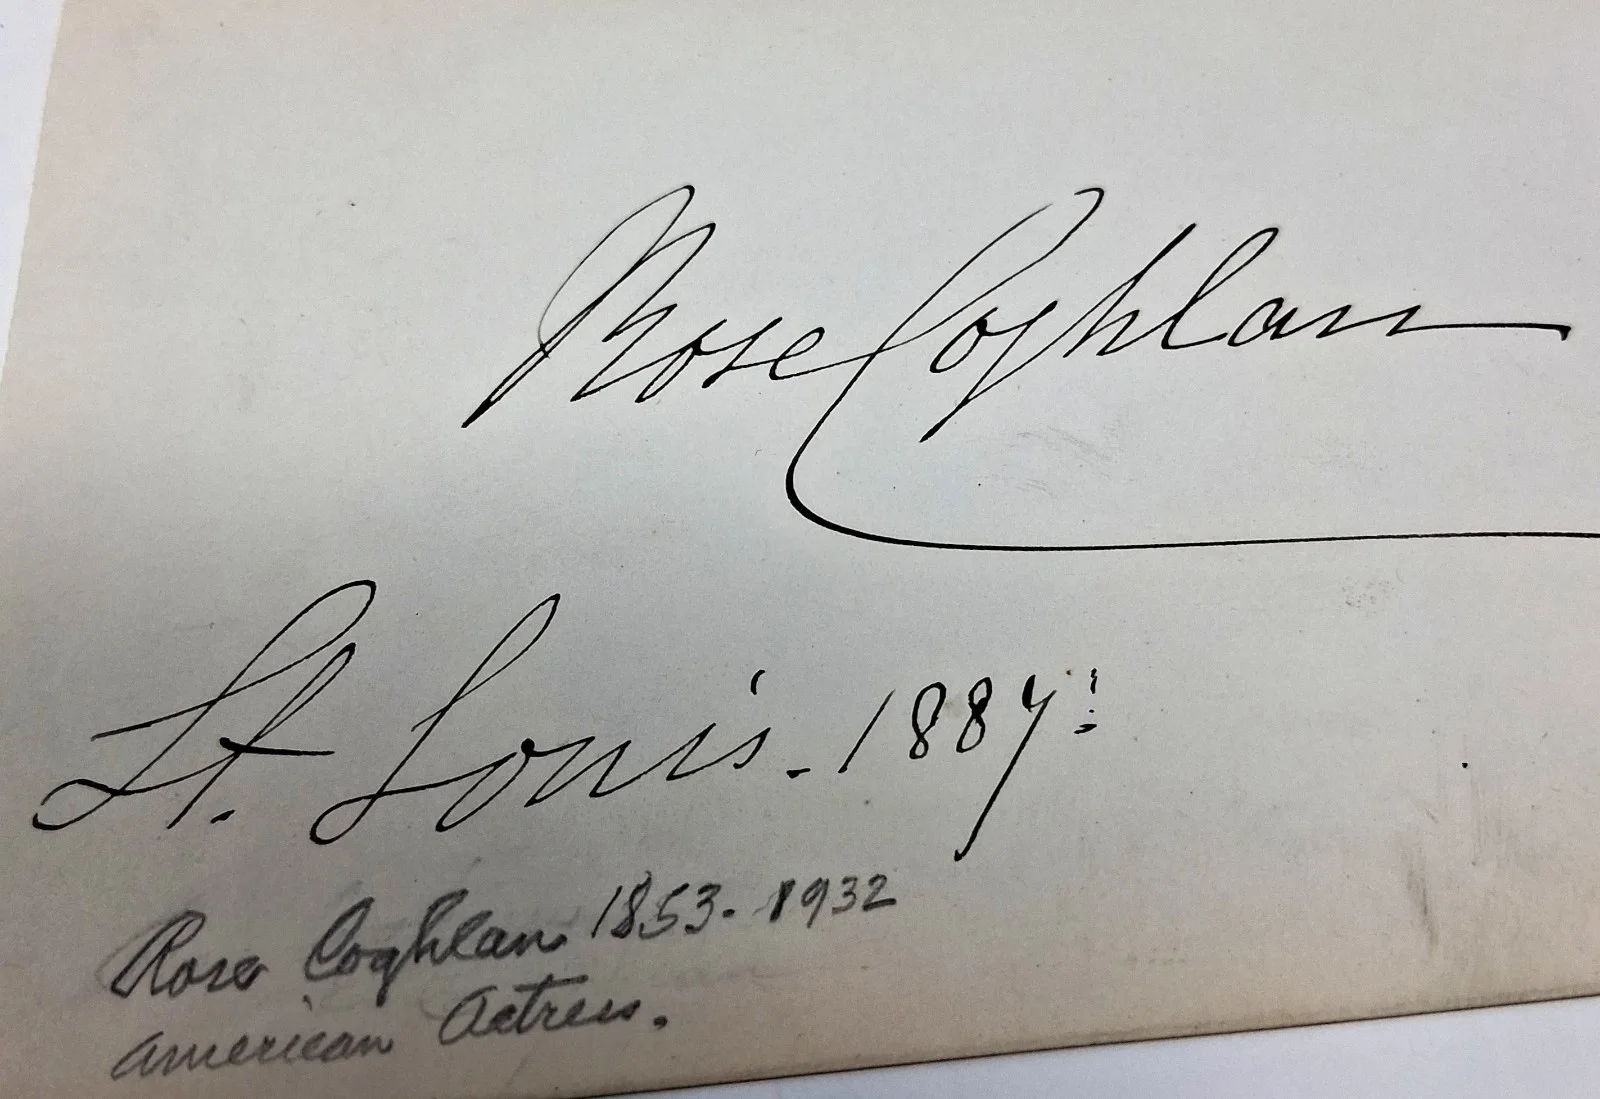 Rose Coghlan
St. Louis. 1887:
Rose Coghlan 1853-1932
American Actress.